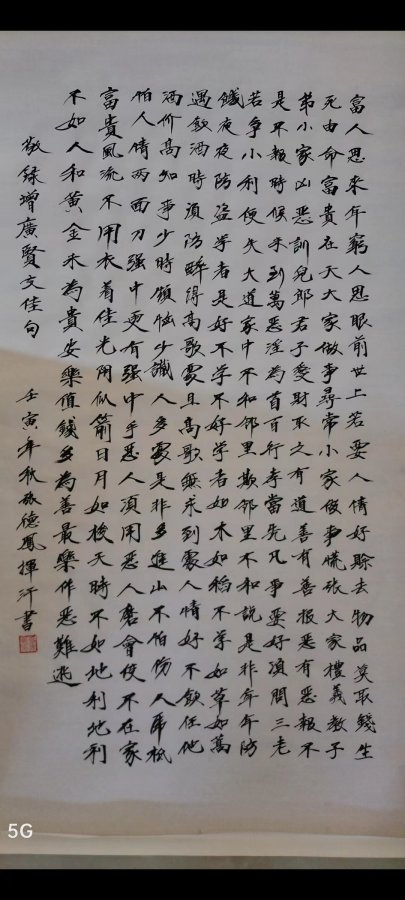 富人思來年窮人思眼前世上若要人情好賒去物品莫取錢生
死由命富貴在天大家做事尋常小家做事慌張大家禮義教子
弟小家凶惡訓兒郎君子愛財取之有道善有善报惡有惡報不
是不報時候未到萬惡淫為首百行孝當先凡事要好須問三老
若爭小利便失大道家中不和鄰里欺鄰里不和說是非年年防
饑夜夜防盗学者是好不学不好学者如禾如稻不学如草如蒿
遇飲酒時須防醉得高歌處且高歌無求到處人情好不飲任他
酒价高知事少時煩恼少識人多處是非多進山不怕伤人虎衹
怕人情两面刀强中更有强中手惡人須用惡人磨會使不在家
富貴風流不用衣着佳光阴似箭日月如梭天時不如地利地利
不如人和黄金未為貴安樂值錢多為善最樂作惡難逃
敬録增廣賢文佳句
壬寅年秋 德鳳揮汗書
5G